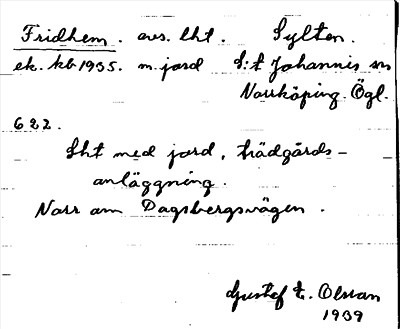 Fridhem. avs. lht. Sylten.
ek. kb 1935. m. jord S:t Johannis sn
Norrköping. Ögl.
622.
Lht med jord, trädgårds-
anläggning.
Norr om Dagsbergsvägen.
Gustef E. Olsson
1939